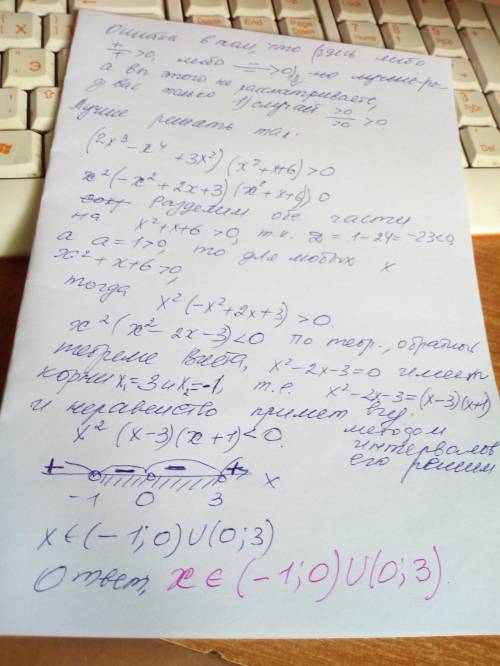 Ошибка в том, что здесь либо
+/+ >0, либо −/− >0, но лучше
а вы этого не рассматриваете,
у вас только 1) случай >0/>0 >0.
Лучше решать так:
(2x³ - x⁴ + 3x²)(x²+x+6)>0
x²(-x²+2x+3)(x²+x+6) 0
разделим обе части
на x²+x+6 >0, т.к. D = 1-24=-23<0,
а a=1>0, то для любых x
x²+x+6>0,
тогда
x²(-x²+2x+3)>0.
x²(x²-2x-3)<0 по теор., обратной
теореме Виета, x²-2x-3=0 имеет
корни x₁=3 и x₂=-1, т.е. x²-2x-3=(x-3)(x+1)
и неравенство примет вид
x²(x-3)(x+1)<0. методом
интервалов
его решим
+ − − +
-1 0 3 x
x∈(-1;0)∪(0;3)
Ответ, x∈(-1;0)∪(0;3).